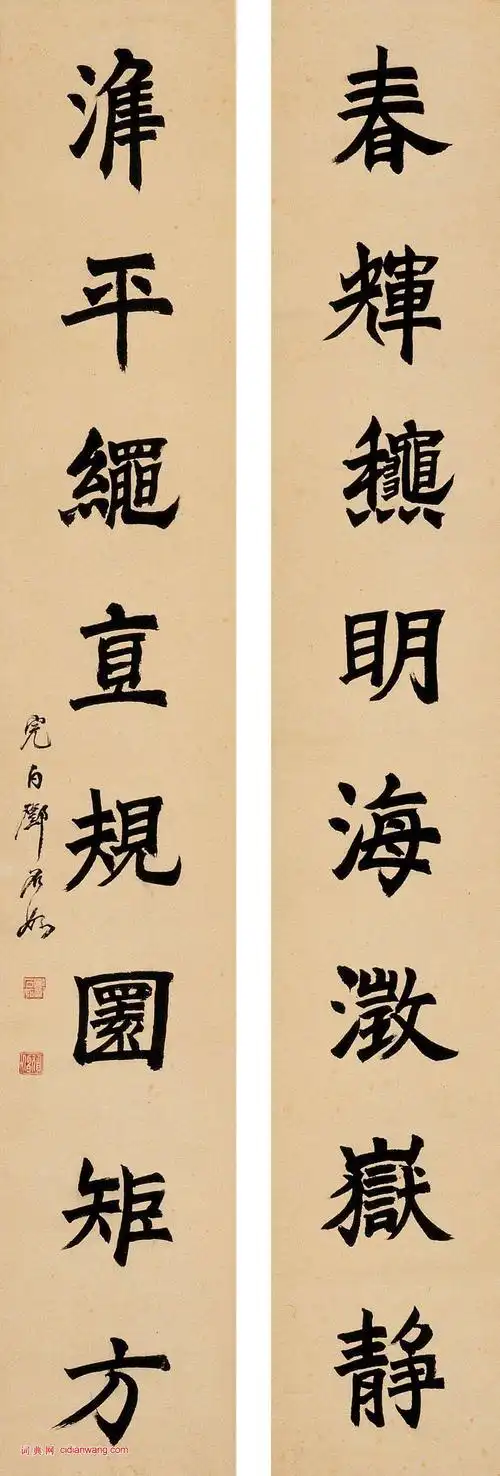 春輝龝明海澂嶽静
準平繩直規圜矩方
完白鄧石如
词典网 cidianwang.com